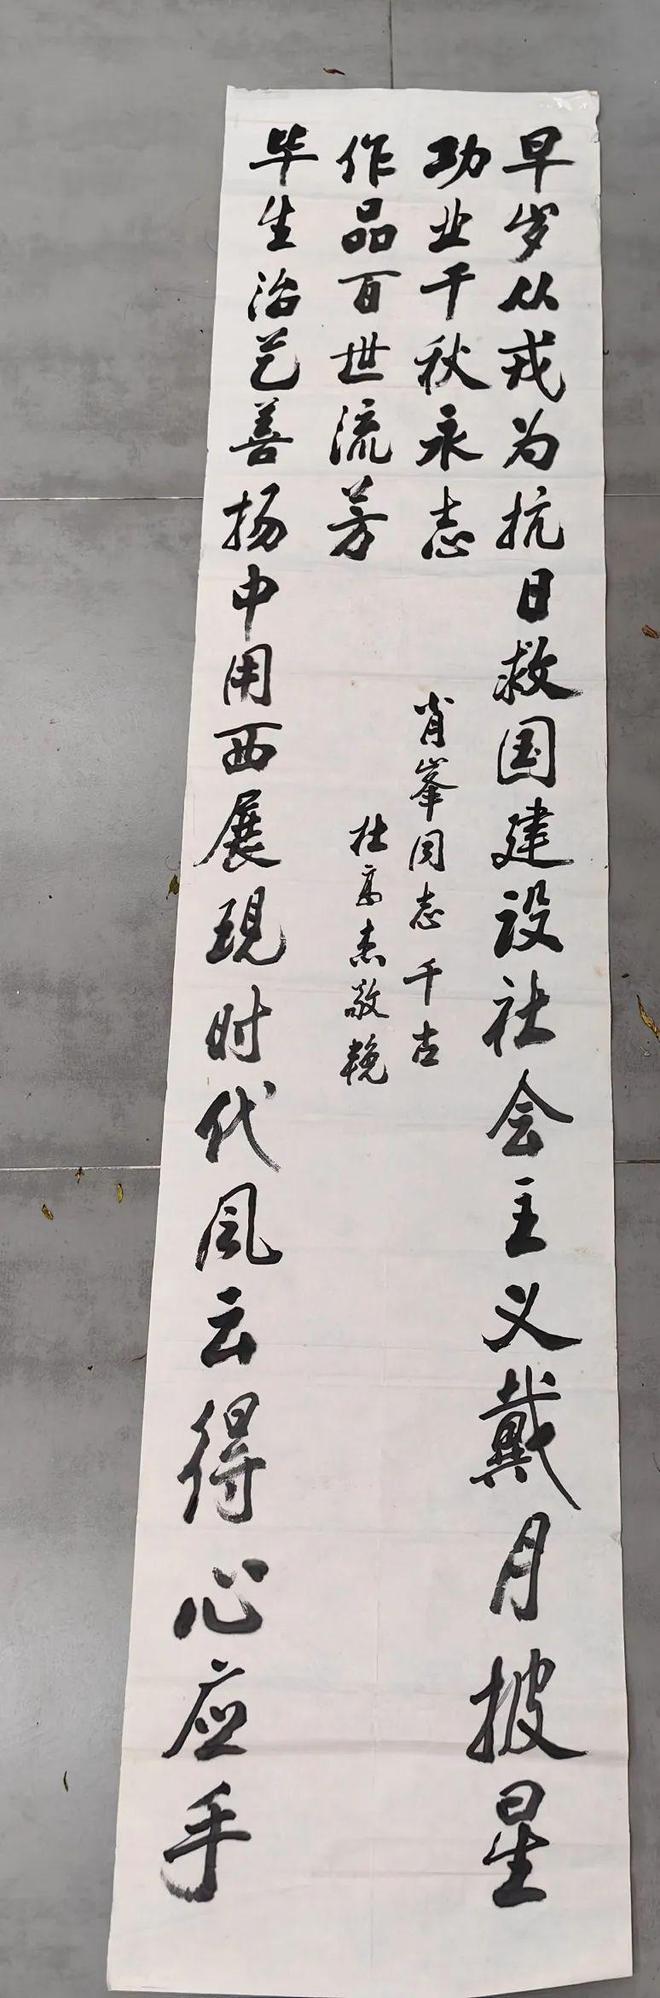 早岁从戎为抗日救国建设社会主义戴月披星
功业千秋永志
肖峯同志千古
杜高杰敬挽
作品百世流芳
毕生治艺善扬中用西展现时代风云得心应手